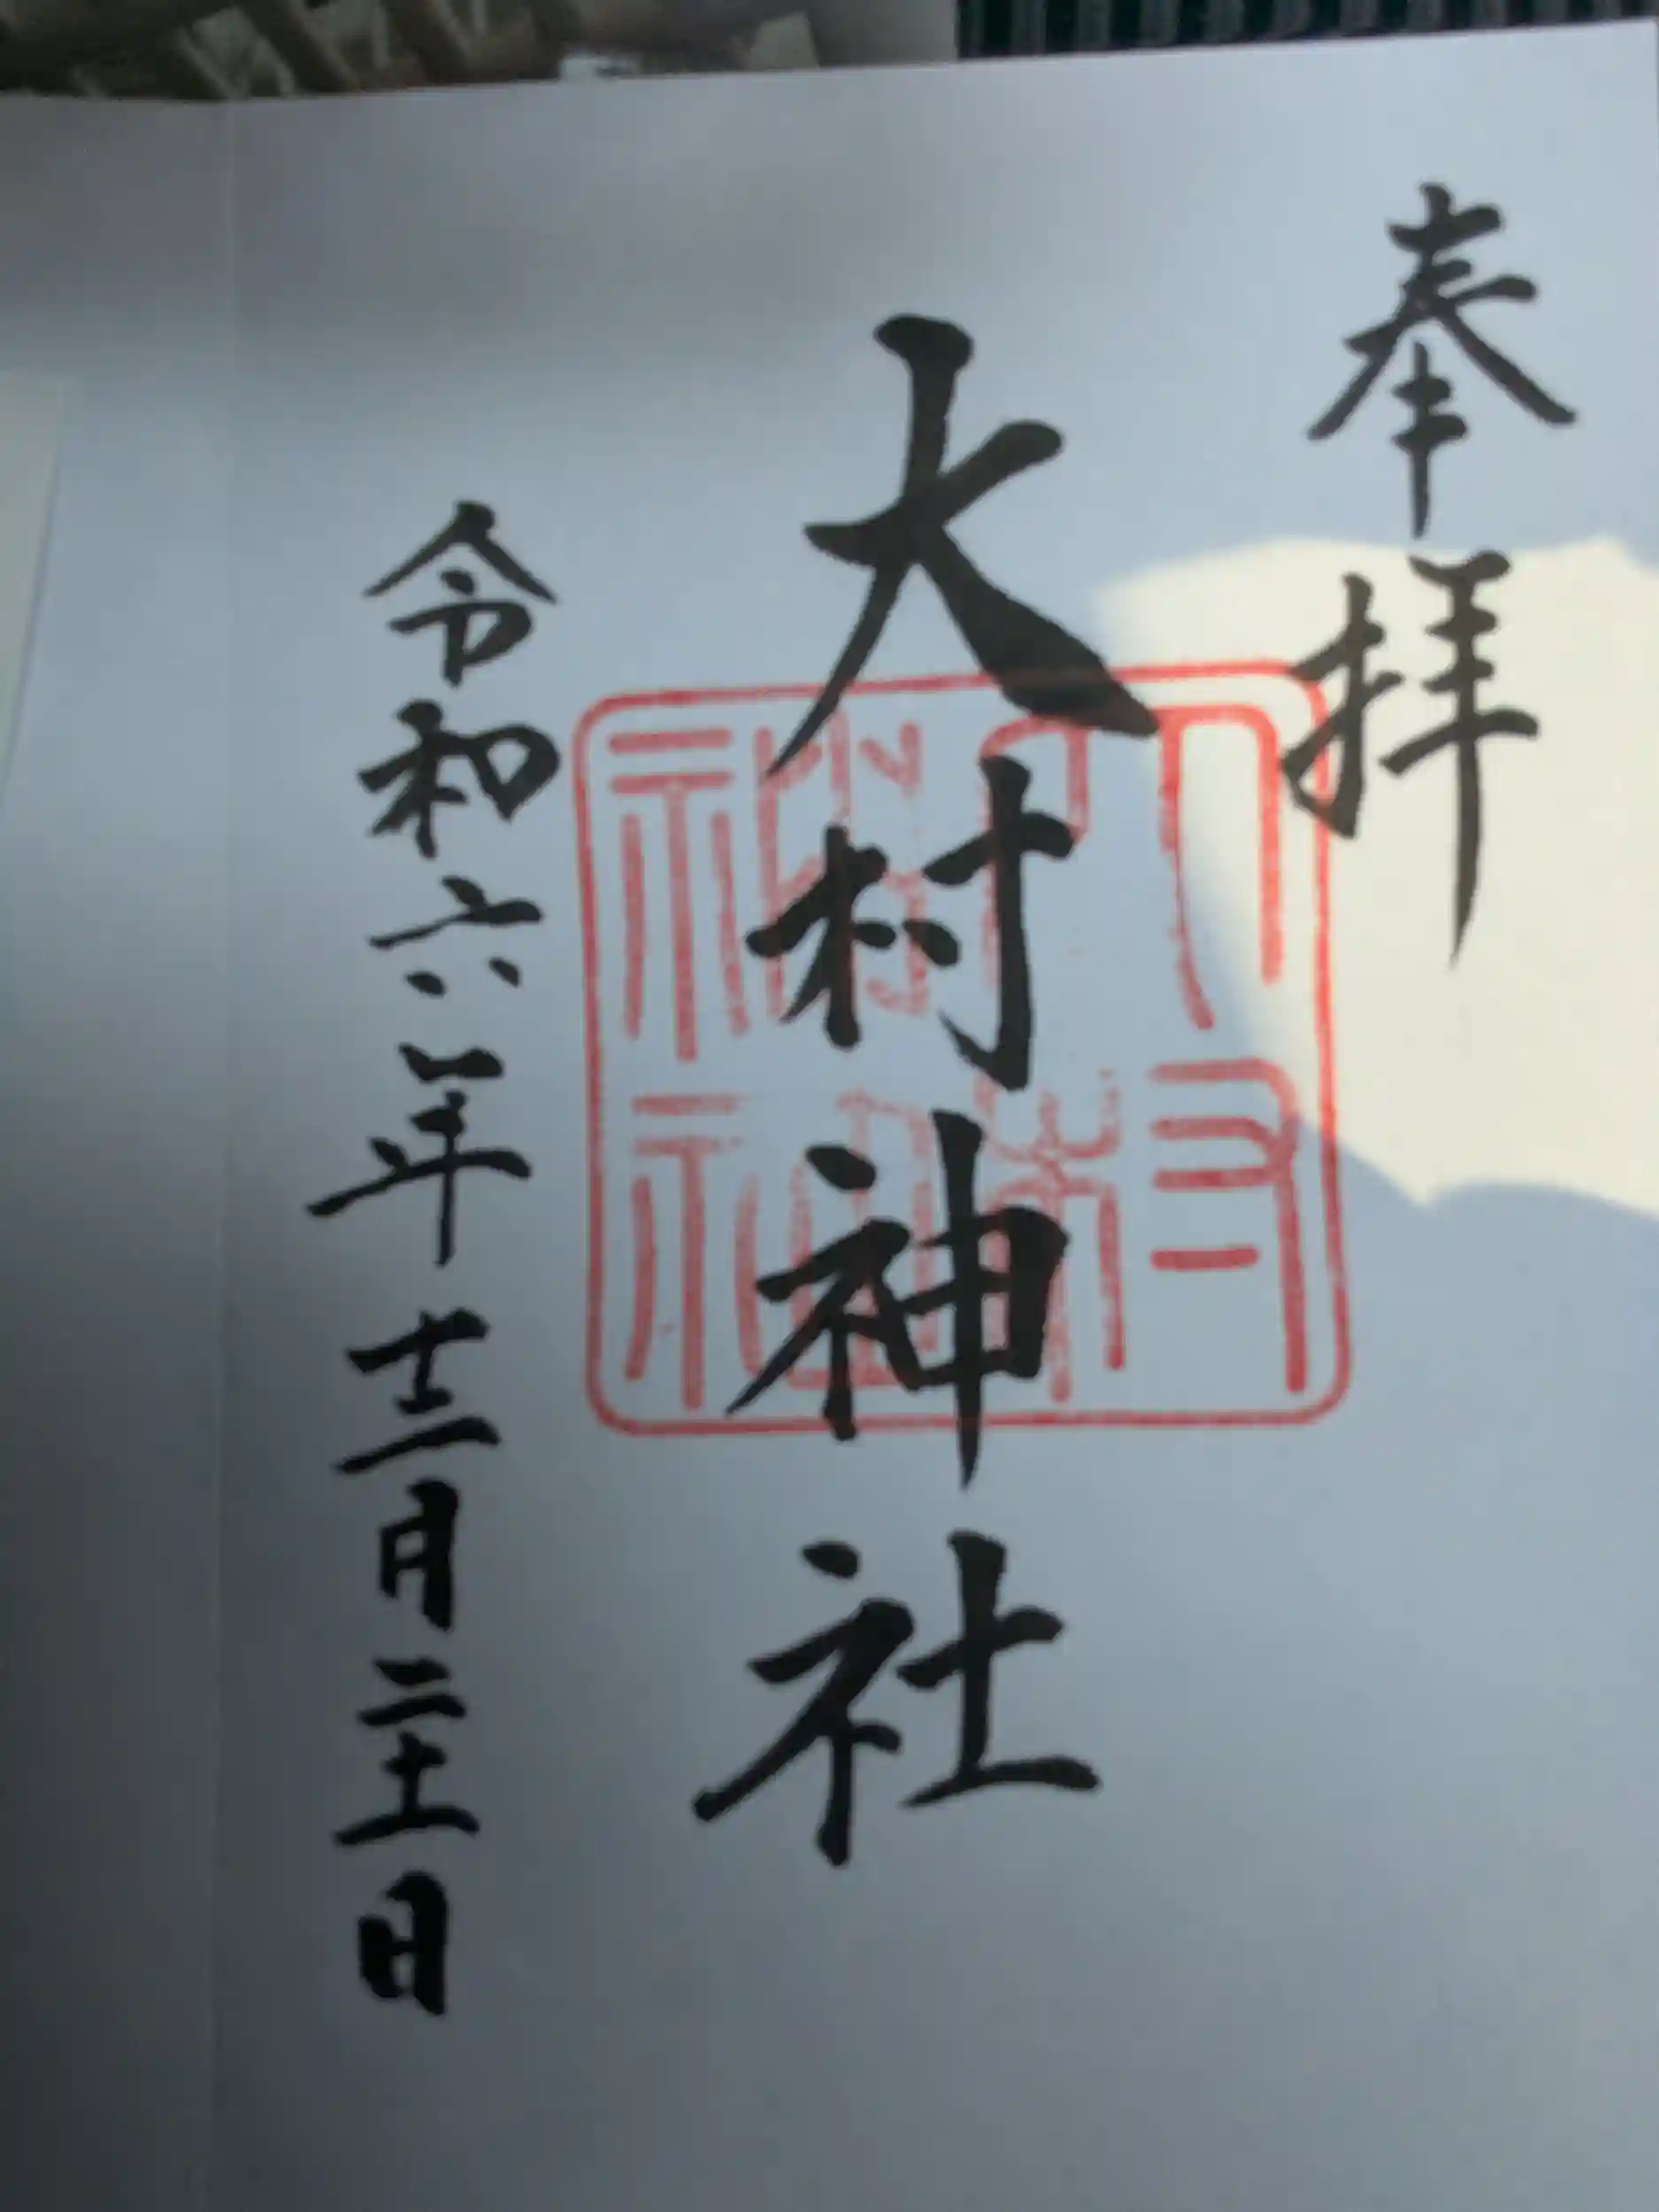 奉拝
大村神社
令和六年十二月二十一日